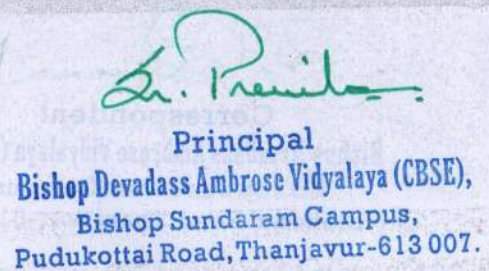 Sr. Premila
Principal
Bishop Devadass Ambrose Vidyalaya (CBSE),
Bishop Sundaram Campus,
Pudukottai Road, Thanjavur-613 007.